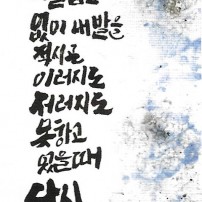 없이 내 발을
적시고
이러지도
저러지도
못하고
있을 때
당신